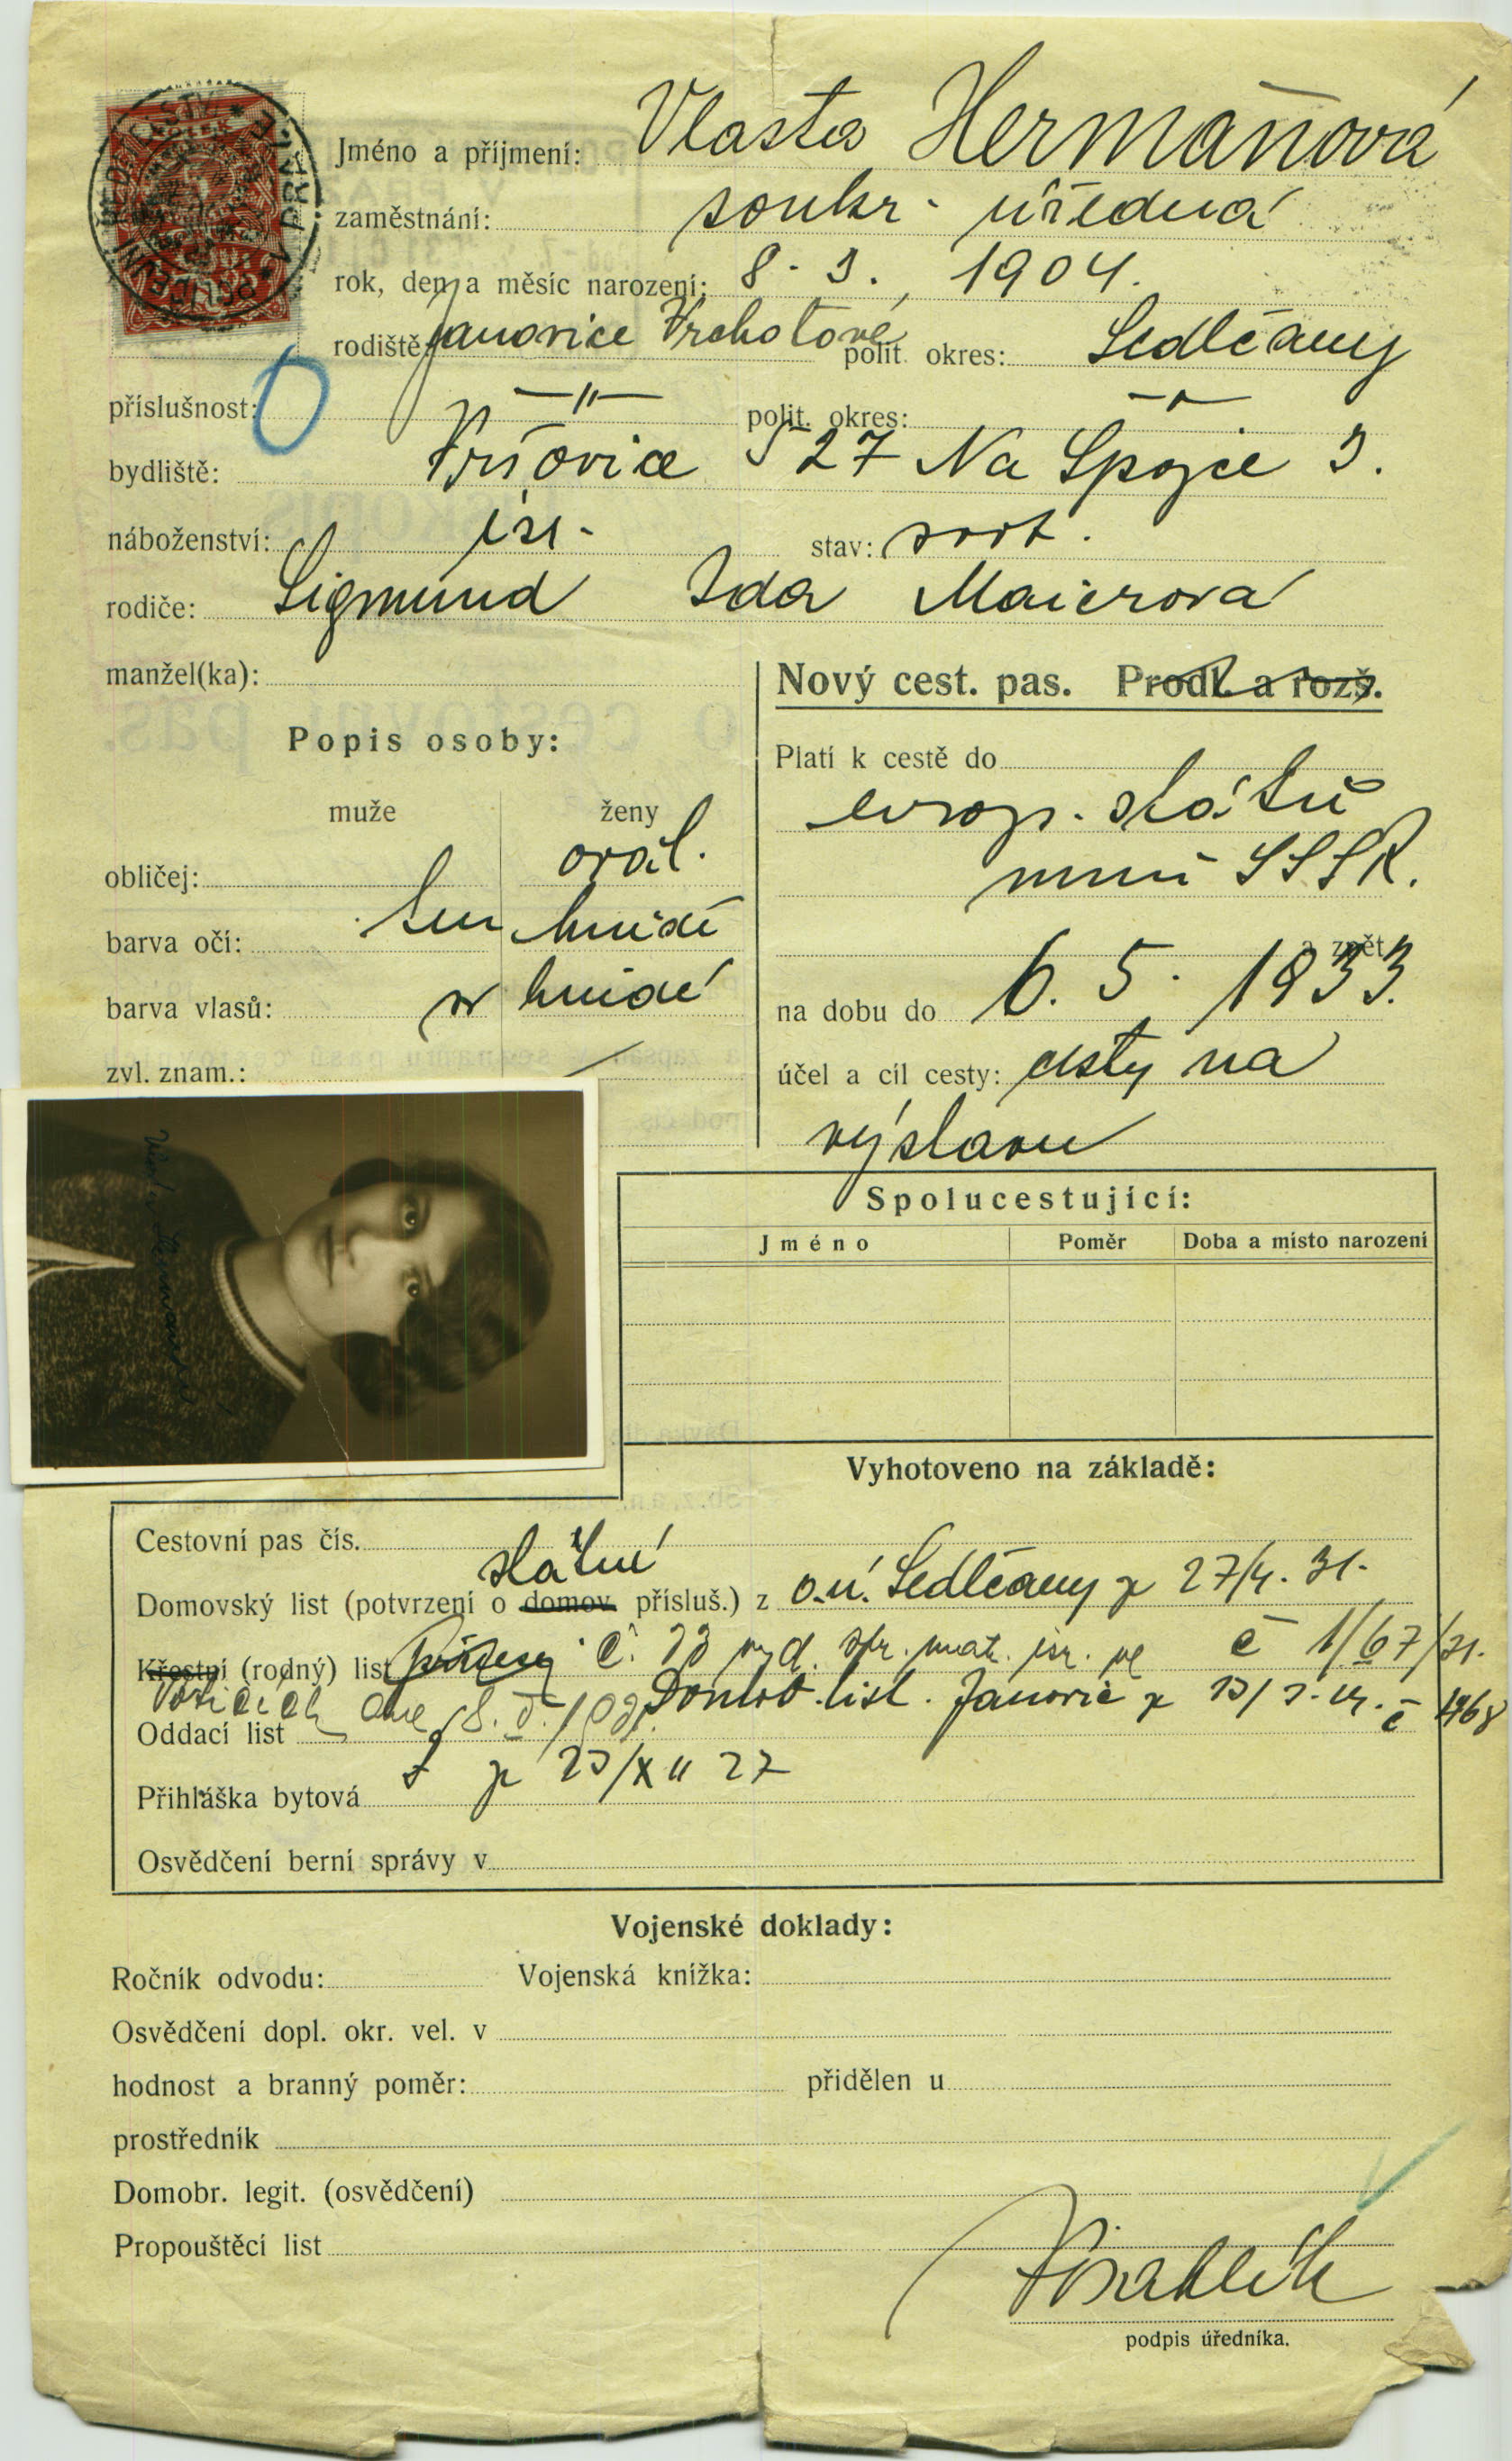 Jméno a příjmení: Vlasta Heřmanová
zaměstnání: soukr. úředná
rok, den a měsíc narození: 8. 3. 1904.
rodiště: Janovice Vrchotové polit. okres: Sedlčany
příslušnost: —"— polit. okres: —"—
bydliště: Vršovice 527 Na Spojce 3.
náboženství: isr. stav: svob.
rodiče: Sigmund Ida Maierova
manžel(ka):
Nový cest. pas. Prodl. a rozš.
Popis osoby:
muže ženy
obličej: oval.
barva očí: tm hnědé
barva vlasů: hnědé
zvl. znam.:
Platí k cestě do
evrop. států
mimo SSSR.
a zpět
na dobu do 6. 5. 1933.
účel a cíl cesty: cesty na
výstavu
Spolucestující:
Jméno Poměr Doba a místo narození
Vyhotoveno na základě:
Cestovní pas čís.
státní
Domovský list (potvrzení o domov. přísluš.) z o. ú. Sedlčany z 27/4. 31.
Křestní (rodný) list č. 23 vyd. spr. mat. isr. ve č 1/67/31.
Voticích dne Domov. list. Janovic z č 1468
Oddací list
Přihláška bytová z 23/XII 27
Osvědčení berní správy v
Vojenské doklady:
Ročník odvodu: Vojenská knížka:
Osvědčení dopl. okr. vel. v
hodnost a branný poměr: přidělen u
prostředník
Domobr. legit. (osvědčení)
Propouštěcí list
podpis úředníka.